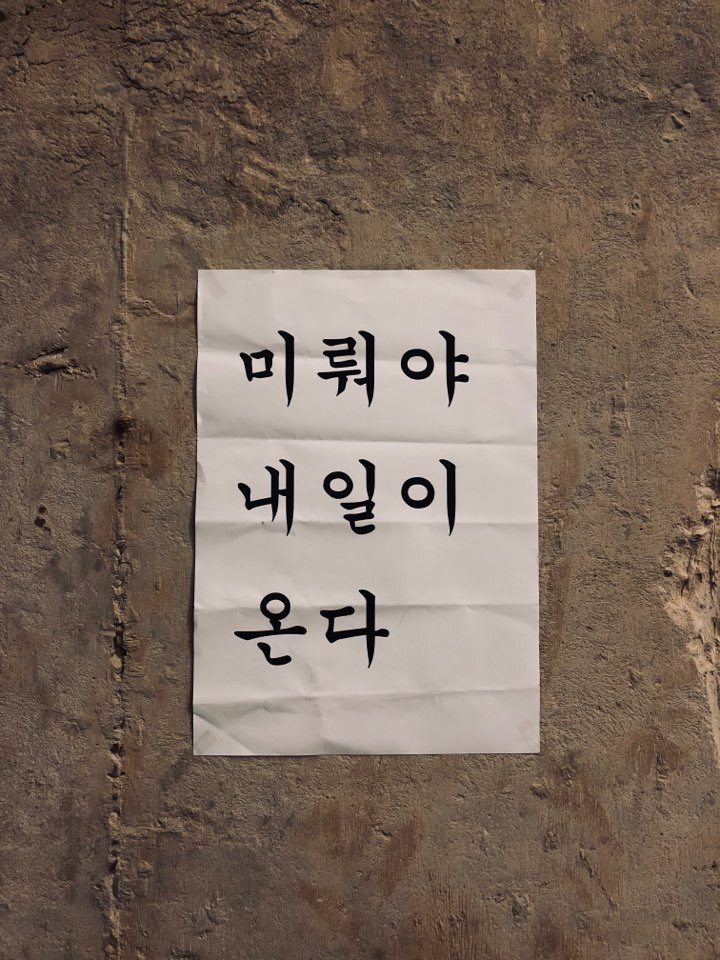 미뤄야
내일이
온다